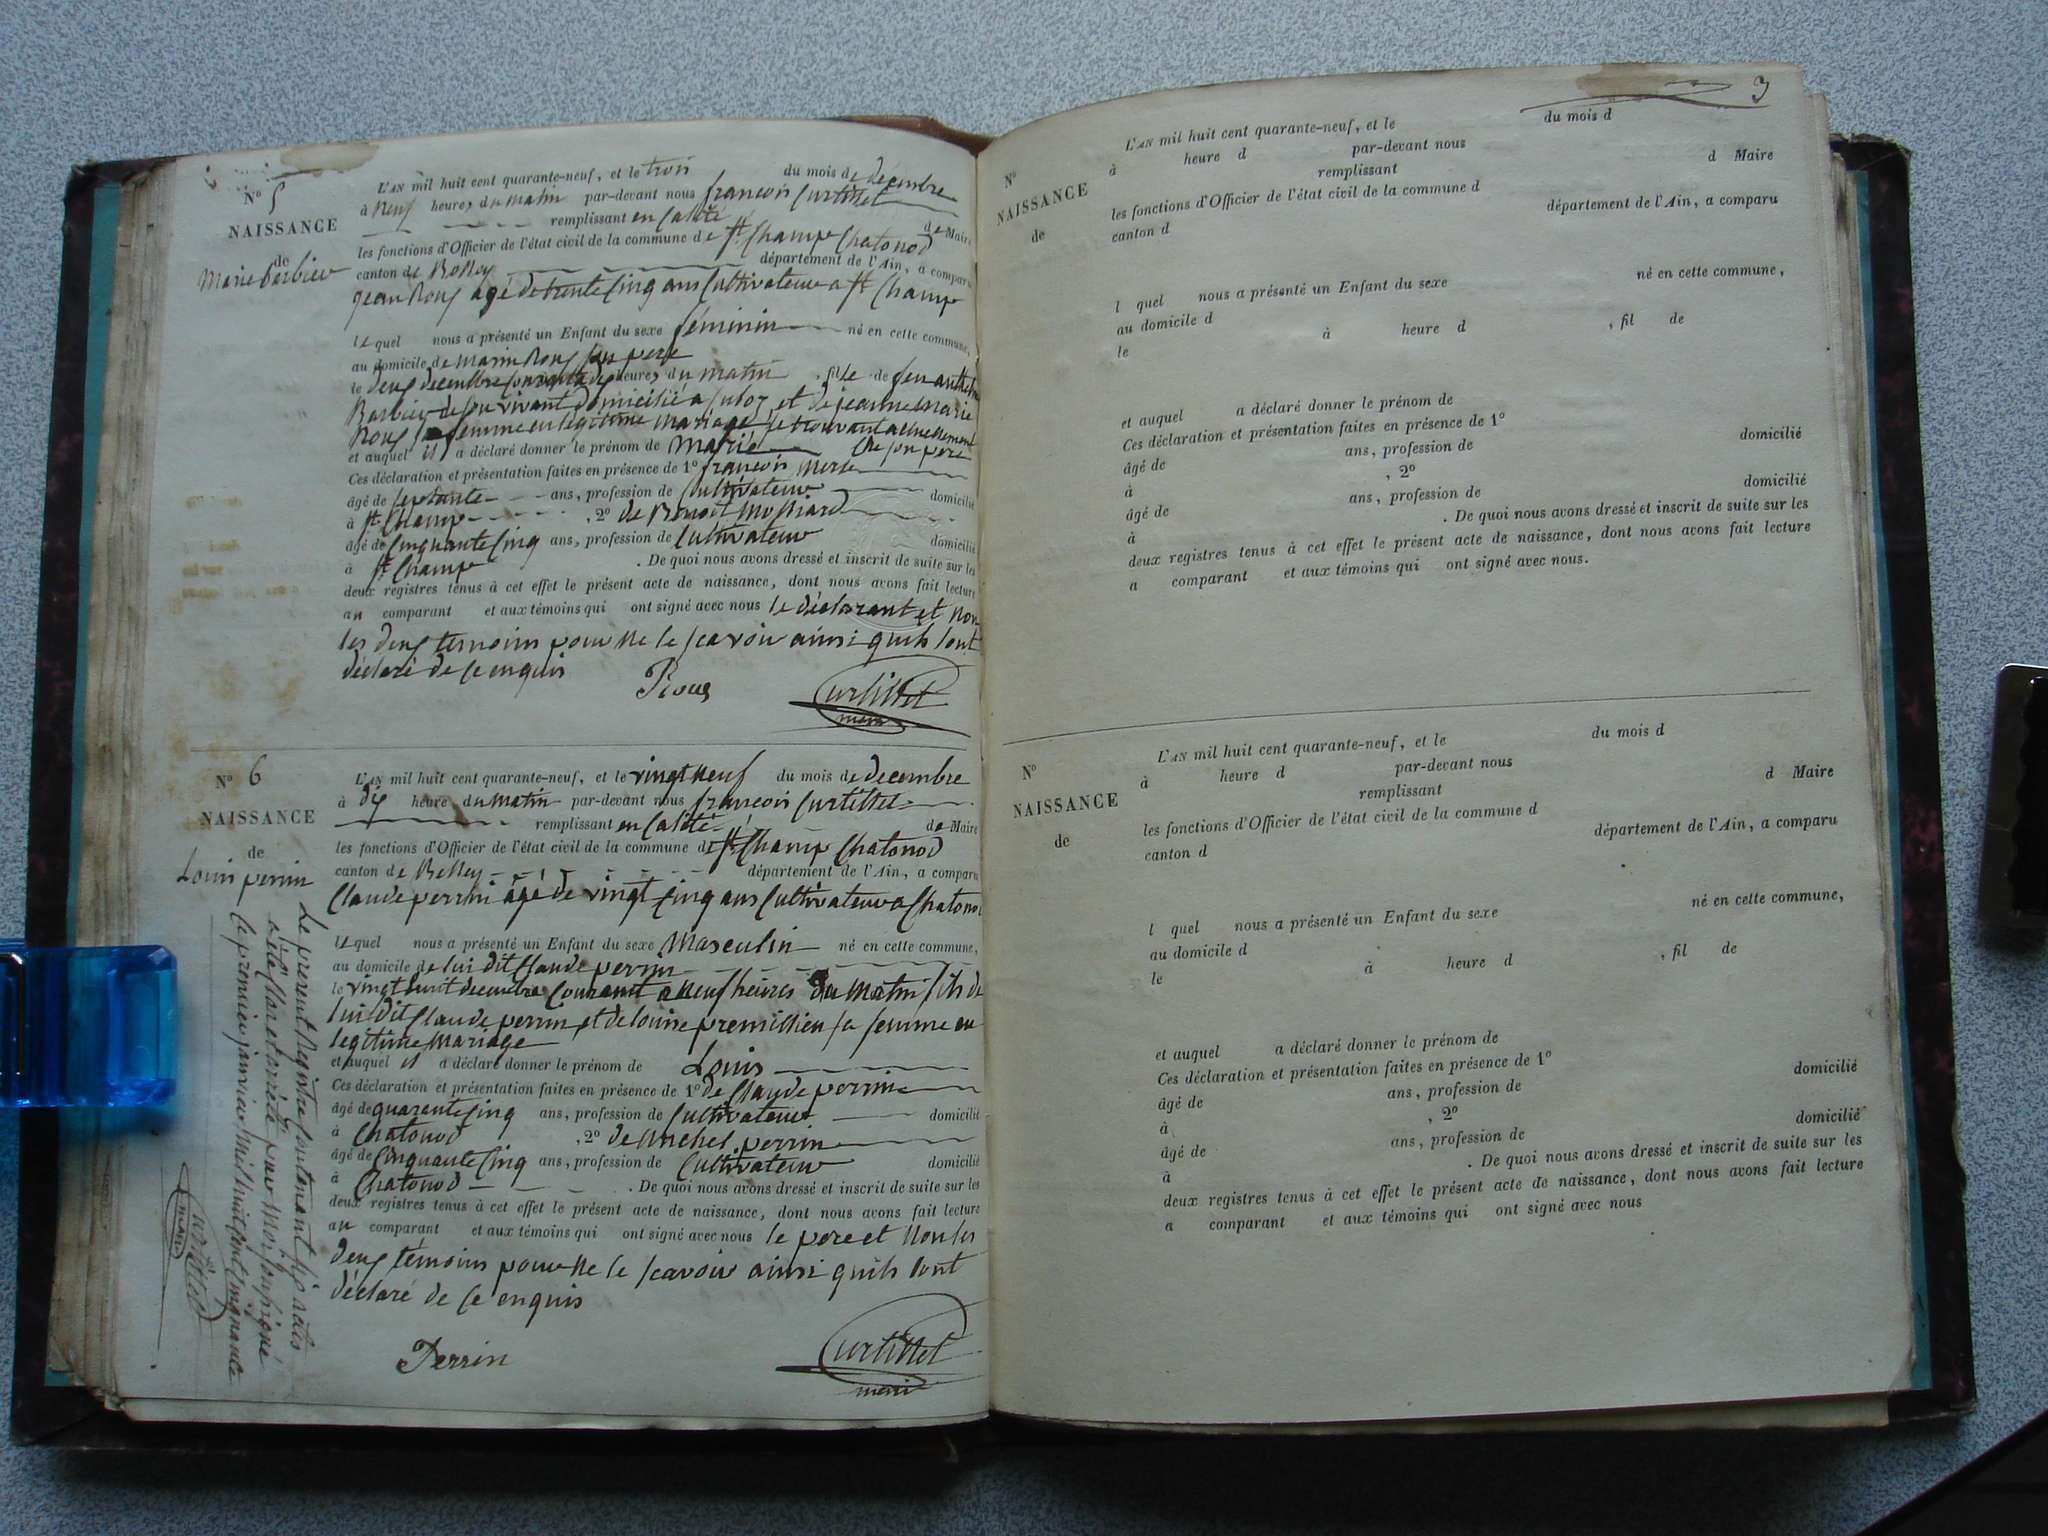 N° 5
NAISSANCE
de
Marie barbier
L'AN mil huit cent quarante-neuf, et le trois du mois de décembre
à Neuf heures du matin par-devant nous françois Curtillet
remplissant en Calité de Maire
les fonctions d'Officier de l'état civil de la commune de St Champ Chatonod
canton de Belley département de l'Ain, a comparu
jean Roux agé de trente Cinq ans Cultivateur a St Champ
le quel nous a présenté un Enfant du sexe féminin né en cette commune,
au domicile de marin Roux son pere
le deux decembre Courant à heures du matin, fille de feu
Barbier de son vivant domicilié a et de jeanne Marie
Roux sa femme en légitime mariage se trouvant actuellement
et auquel il a déclaré donner le prénom de Marie Che son pere
Ces déclaration et présentation faites en présence de 1° françois
âgé de Septante ans, profession de Cultivateur domicilié
à St Champ, 2° de Benoit
âgé de Cinquante Cinq ans, profession de Cultivateur domicilié
à St Champ. De quoi nous avons dressé et inscrit de suite sur les
deux registres tenus à cet effet le présent acte de naissance, dont nous avons fait lecture
au comparant et aux témoins qui ont signé avec nous le déclarant et non
les deux temoins pour ne le scavoir ainsi quils lont
déclaré de ce enquis
Roux Curtillet
maire
N° 6
NAISSANCE
de
Louis perrin
L'AN mil huit cent quarante-neuf, et le vingt neuf du mois de decembre
à dix heure du matin par-devant nous françois Curtillet
remplissant en Calité de Maire
les fonctions d'Officier de l'état civil de la commune de St Champ Chatonod
canton de Belley département de l'Ain, a comparu
Claude perrin âgé de vingt Cinq ans Cultivateur a Chatonod
le quel nous a présenté un Enfant du sexe Masculin né en cette commune,
au domicile de lui dit Claude perrin
le vingt huit decembre Courant a Neuf heures du Matin fils de
lui dit Claude perrin et de louise premillieu sa femme en
legitime Mariage
et auquel il a déclaré donner le prénom de Louis
Ces déclaration et présentation faites en présence de 1° de Claude perrin
âgé de quarente Cinq ans, profession de Cultivateur domicilié
à Chatonod, 2° de Michel perrin
âgé de Cinquante Cinq ans, profession de Cultivateur domicilié
à Chatonod. De quoi nous avons dressé et inscrit de suite sur les
deux registres tenus à cet effet le présent acte de naissance, dont nous avons fait lecture
au comparant et aux témoins qui ont signé avec nous le pere et Non les
deux témoins pour Ne le scavoir ainsi quils lont
déclaré de ce enquis
Perrin Curtillet
maire
Le present Registre Contenant six actes
a été Clos et arrêté par Moi soussigné
le premier janvier Mil huit Cent Cinquante
Curtillet
maire
3
N°
NAISSANCE
de
L'AN mil huit cent quarante-neuf, et le du mois d
à heure d par-devant nous
remplissant d Maire
les fonctions d'Officier de l'état civil de la commune d
canton d département de l'Ain, a comparu
l quel nous a présenté un Enfant du sexe né en cette commune,
au domicile d
le à heure d , fil de
et auquel a déclaré donner le prénom de
Ces déclaration et présentation faites en présence de 1°
âgé de ans, profession de domicilié
à , 2°
âgé de ans, profession de domicilié
à . De quoi nous avons dressé et inscrit de suite sur les
deux registres tenus à cet effet le présent acte de naissance, dont nous avons fait lecture
a comparant et aux témoins qui ont signé avec nous.
N°
NAISSANCE
de
L'AN mil huit cent quarante-neuf, et le du mois d
à heure d par-devant nous
remplissant d Maire
les fonctions d'Officier de l'état civil de la commune d
canton d département de l'Ain, a comparu
l quel nous a présenté un Enfant du sexe né en cette commune,
au domicile d
le à heure d , fil de
et auquel a déclaré donner le prénom de
Ces déclaration et présentation faites en présence de 1°
âgé de ans, profession de domicilié
à , 2°
âgé de ans, profession de domicilié
à . De quoi nous avons dressé et inscrit de suite sur les
deux registres tenus à cet effet le présent acte de naissance, dont nous avons fait lecture
a comparant et aux témoins qui ont signé avec nous